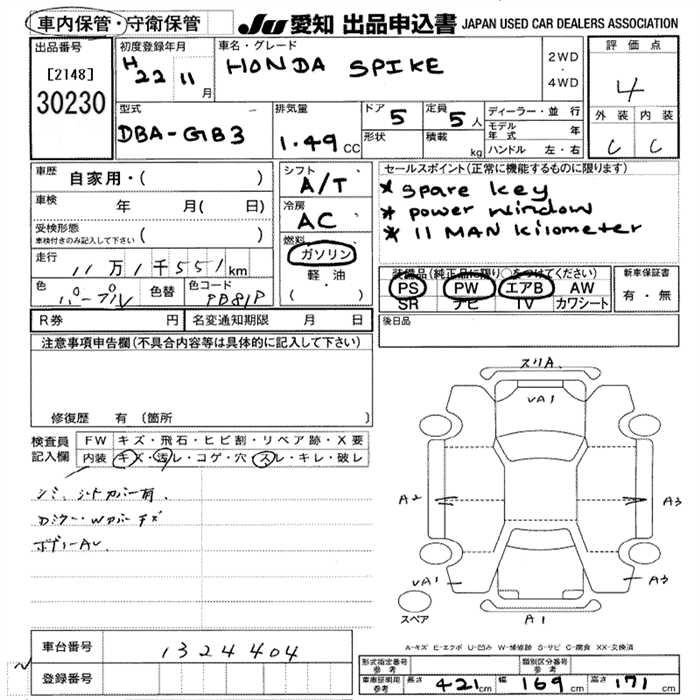 車内保管・守衛保管
JU 愛知 出品申込書 JAPAN USED CAR DEALERS ASSOCIATION
出品番号
[2148]
30230
初度登録年月
H 22 11 月
車名・グレード
HONDA SPIKE
2WD
・
4WD
評価点
4
外装 内装
C C
型式
DBA-GB3
排気量
1.49 CC
ドア 5
形状
定員 5人
積載 kg
ディーラー・並行
モデル年式 年
ハンドル 左・右
車歴 自家用・( )
車検 年 月( 日)
受検形態
車検付きのみ記入して下さい ( )
走行 11万1千551km
色 パープル 色替 色コード PB81P
シフト
A/T
冷房
AC
燃料
ガソリン
軽油
( ・ )
セールスポイント(正常に機能するものに限ります)
* spare key
* power window
* 11 MAN kilometer
装備品(純正品に限り○をつけてください)
PS PW エアB AW
SR ナビ TV カワシート
新車保証書
有・無
R券 円 名変通知期限 月 日
後日品
注意事項申告欄(不具合内容等は具体的に記入して下さい)
修復歴 有 (箇所 )
検査員記入欄
FW キズ・飛石・ヒビ割・リペア跡・X要
内装 キズ・汚レ・コゲ・穴・スレ・キレ・破レ
シミ、シートカバー有、
Dミラー・Wカバーキズ
ボデーAし
スリA、
VA1
A2
A3
VA1
A3
A1
スペア
A-キズ E-エクボ U-凹み W-補修跡 S-サビ C-腐食 XX-交換済
車台番号 1324404
登録番号
形式指定番号 参考
類別区分番号 参考
車庫証明用 参考 長さ 421cm 幅 169cm 高さ 171cm